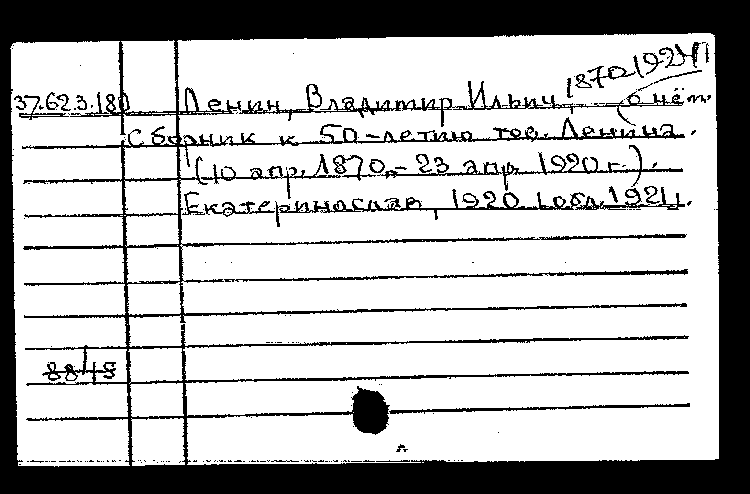 1870-1924
37.62.3.180 Ленин, Владимир Ильич, о нём.
Сборник к 50-летию тов. Ленина.
(10 апр. 1870.-23 апр. 1920 г.).
Екатеринослав, 1920 [обл. 1921].